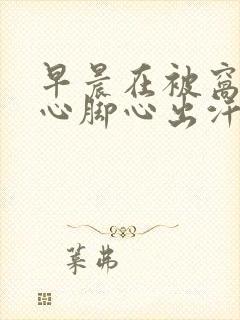 早晨在被窝
心脚心出汗
叶弗